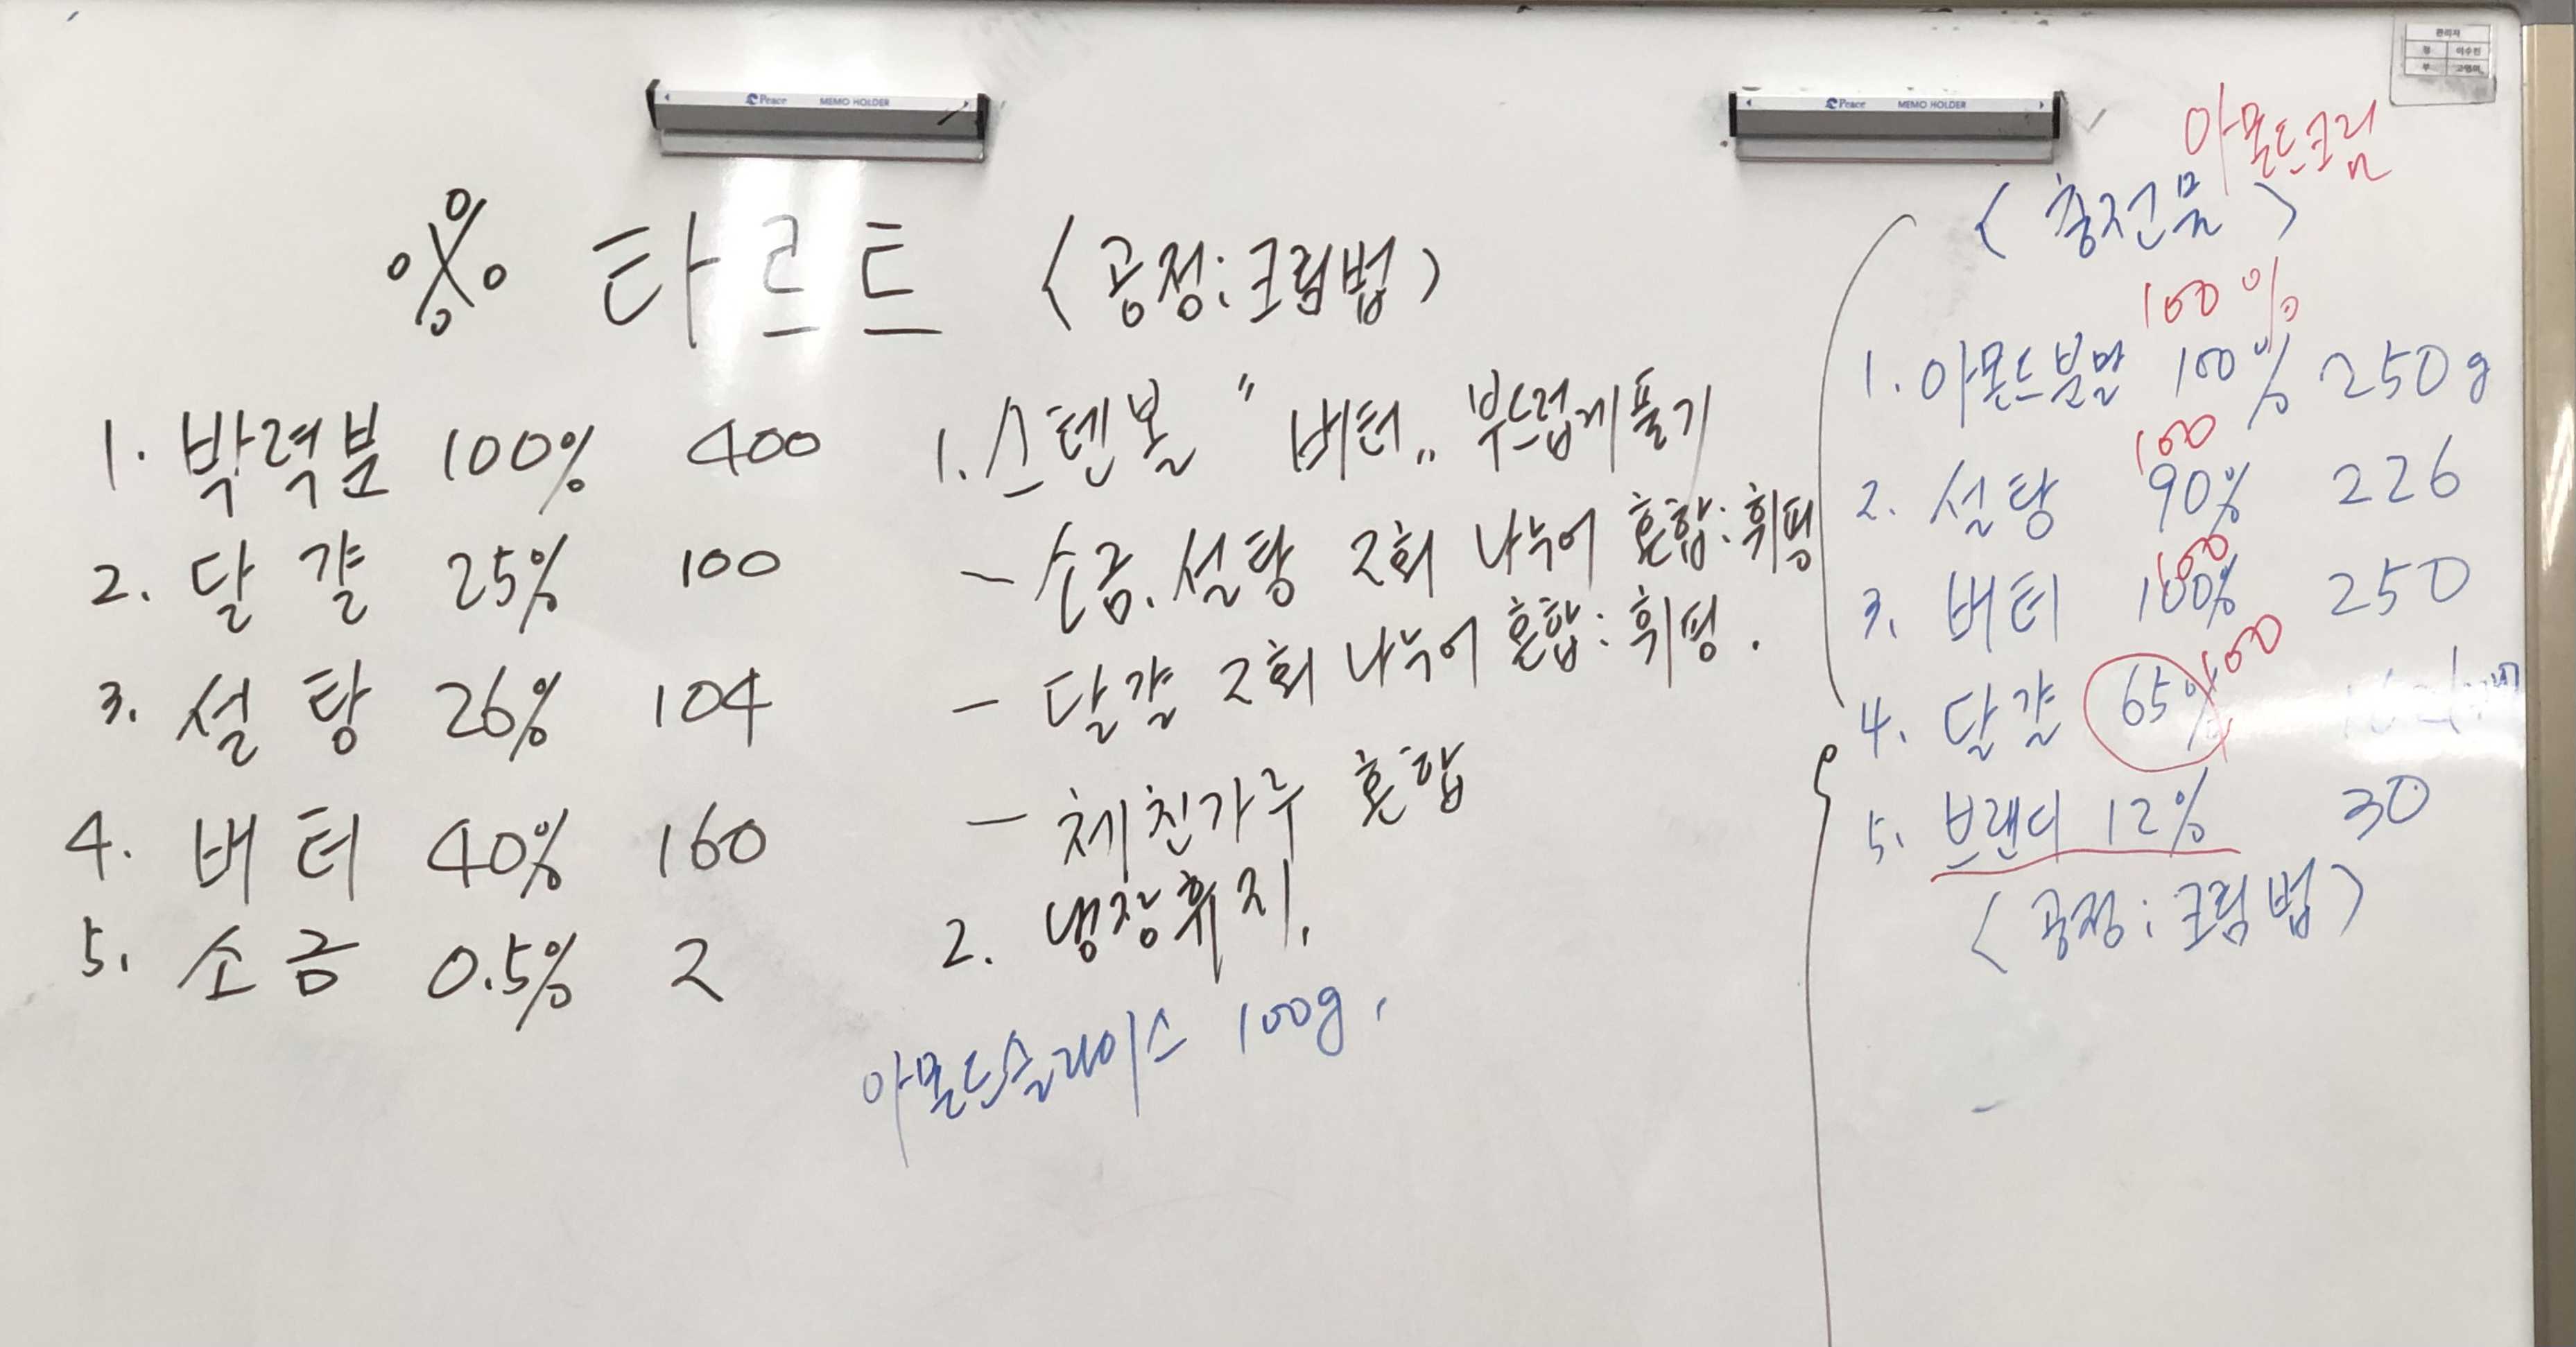 Peace MEMO HOLDER
Peace MEMO HOLDER
관리자
정 이수진
부
※ 타르트 <공정:크림법>
1. 박력분 100% 400
2. 달걀 25% 100
3. 설탕 26% 104
4. 버터 40% 160
5. 소금 0.5% 2
1. 스텐볼 " 버터 „ 부드럽게 풀기
- 소금. 설탕 2회 나누어 혼합: 휘핑
- 달걀 2회 나누어 혼합: 휘핑.
- 체친가루 혼합
2. 냉장휴지.
아몬드슬라이스 100g.
아몬드크림
<충전물>
100%
1. 아몬드분말 100% 250g
100
2. 설탕 90% 226
100
3. 버터 100% 250
100
4. 달걀 65%
5. 브랜디 12% 30
<공정: 크림법>